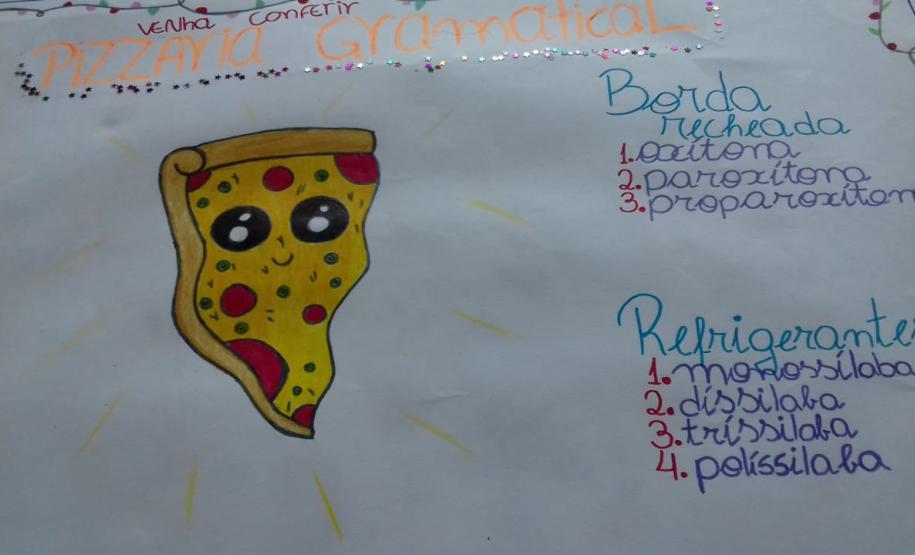 VENHA CONFERIR
PIZZARIA GRAMATICAL
Borda
recheada
1. oxítona
2. paroxítona
3. proparoxíton
Refrigerante
1. monossílaba
2. díssilaba
3. tríssilaba
4. políssilaba